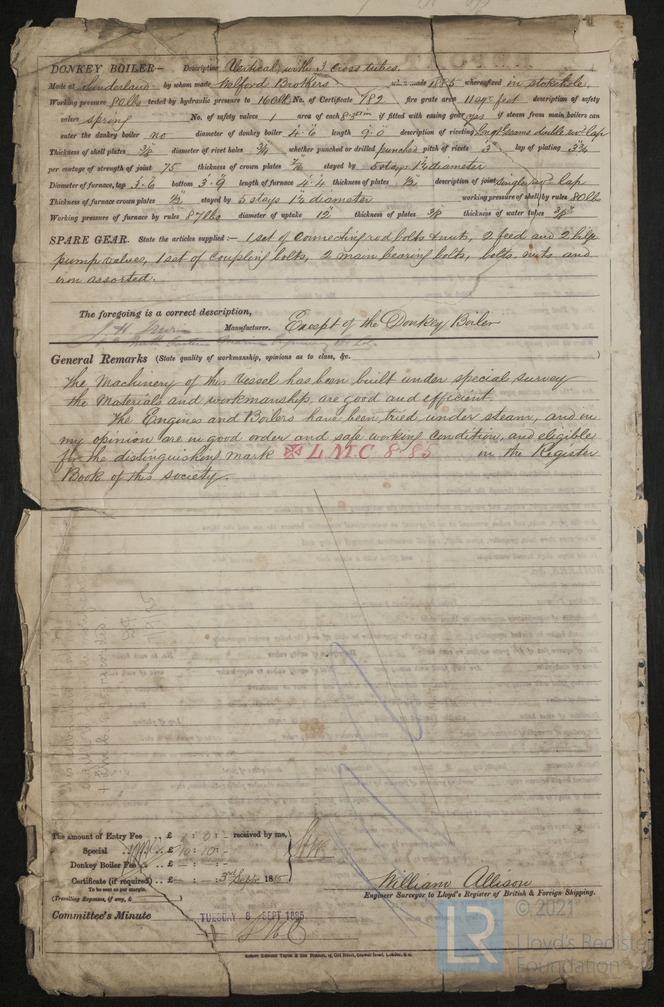 DONKEY BOILER— Description Vertical with 3 cross tubes.
Made at Sunderland by whom made Welford Brothers when made 1885 where fixed in stokehole
Working pressure 80 lbs tested by hydraulic pressure to 160 lbs No. of Certificate 782 fire grate area 11 sq. feet description of safety
valves spring No. of safety valves 1 area of each if fitted with easing gear yes if steam from main boilers can
enter the donkey boiler no diameter of donkey boiler 4·6 length 9·0 description of riveting Long. seams double riv. lap
Thickness of shell plates 3/8 diameter of rivet holes whether punched or drilled punched pitch of rivets 3" lap of plating 3 3/4
per centage of strength of joint 75 thickness of crown plates 7/16 stayed by 5 stays diameter
Diameter of furnace, top 3·6 bottom 3·9 length of furnace 4·4 thickness of plates 1/2 description of joint single riv. Lap
Thickness of furnace crown plates 1/2 stayed by 5 stays diameter working pressure of shell by rules 80 lbs
Working pressure of furnace by rules 87 lbs diameter of uptake 12 thickness of plates 3/8 thickness of water tubes 3/8
SPARE GEAR. State the articles supplied:— 1 set of connecting rod bolts & nuts, 2 feed and 2 bilge
pump valves, 1 set of coupling bolts, 2 main bearing bolts, bolts, nuts and
iron assorted.
The foregoing is a correct description,
Manufacturer. Except of the Donkey Boiler
General Remarks (State quality of workmanship, opinions as to class, &c.
The Machinery of this Vessel has been built under special survey
the materials and workmanship are good and efficient.
The Engines and Boilers have been tried under steam, and in
my opinion are in good order and safe working condition, and eligible
for the distinguishing mark ✠ L.M.C 8.85 in the Register
Book of this society.
The amount of Entry Fee .. £ : 0 : - received by me,
Special .. £ 10 : 10 : -
Donkey Boiler Fee .. £ : :
Certificate (if required) .. £ : : 3rd Sept. 1885
To be sent as per margin.
(Travelling Expenses, if any, £ )
William Allison
Engineer Surveyor to Lloyd's Register of British & Foreign Shipping.
Committee's Minute TUESDAY 8 SEPT 1885
© 2021
LR Lloyd's Register
Foundation